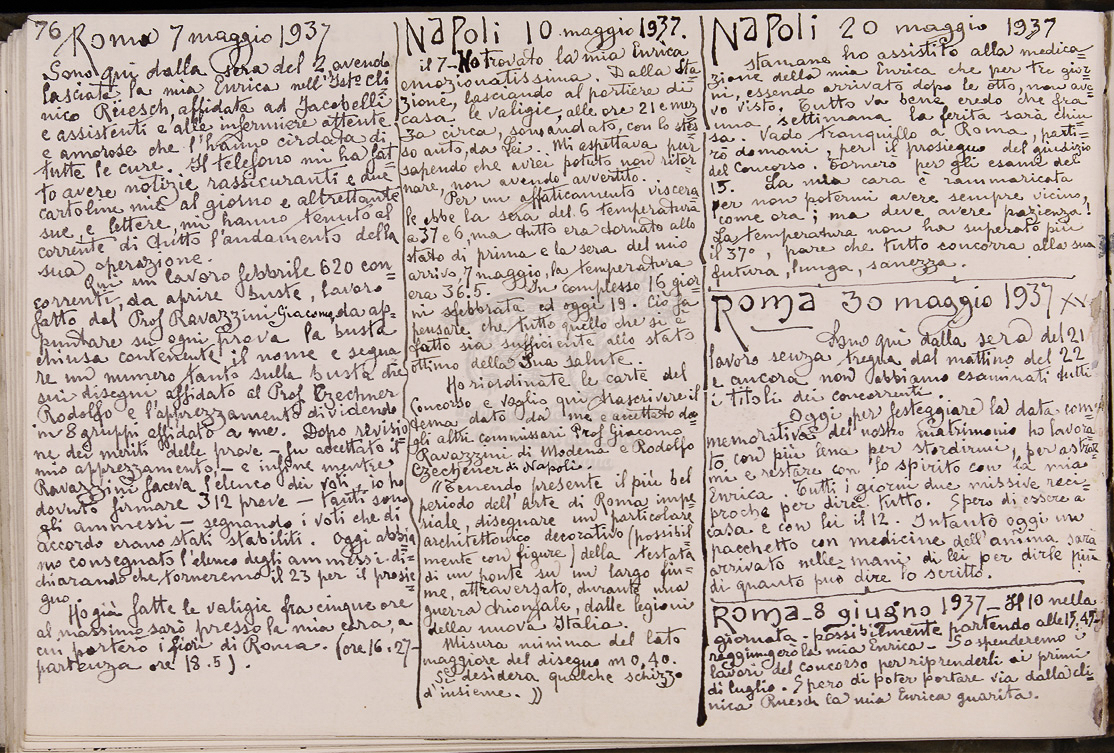 76
Roma 7 maggio 1937
Sono qui dalla sera del 2 avendo
lasciata la mia Enrica nell'Iste cli=
nico Rüesch, affidata ad Jacobelli
e assistenti e alle infermiere attente
e amorose che l'hanno cirdata di
tutte le cure. Il telefono mi ha fat
to avere notizie rassicuranti e due
cartoline mie al giorno e altrettante
sue, e lettere, mi hanno tenuto al
corrente di tutto l'andamento della
sua operazione.
Qui un lavoro febbrile 620 con=
correnti, da aprire buste, lavoro
fatto dal Prof Ravazzini Giacomo, da ap=
puntare su ogni prova la busta
chiusa contenente il nome e segna
re un numero tanto sulla busta che
sui disegni affidato al Prof Czechner
Rodolfo e l'apprezzamento dividendo
in 8 gruppi affidato a me. Dopo revisio
ne dei meriti delle prove - fu accettato il
mio apprezzamento - e infine mentre
Ravazzini faceva l'elenco dei voti - io ho
dovuto firmare 312 prove - tanti sono
gli ammessi - segnando i voti che di
accordo erano stati stabiliti. Oggi abbia
mo consegnato l'elenco degli ammessi di=
chiarando che torneremo il 23 per il prosie
guo.
Ho già fatte le valigie fra cinque ore
al massimo sarò presso la mia cara, a
cui porterò i fiori di Roma. (ore 16.27-
partenza ore 18.5).
Napoli 10 maggio 1937.
il 7- Ho trovato la mia Enrica
emozionatissima. Dalla Sta=
zione, lasciando al portiere di
casa le valigie, alle ore 21 e mez
za circa, sono andato, con lo stes
so auto, da lei. Mi aspettava pur
sapendo che avrei potuto non ritor=
nare, non avendo avvertito.
Per un affaticamento viscera
le ebbe la sera del 6 temperatura
a 37 e 6, ma tutto era tornato allo
stato di prima e la sera del mio
arrivo, 7 maggio, la temperatura
era 36.5. In complesso 16 gior=
ni sfebbrata ed oggi 19. Ciò fa
pensare che tutto quello che si è
fatto sia sufficiente allo stato
ottimo della Sua salute.
Ho riordinate le carte del
Concorso e voglio qui trascrivere il
tema dato da me accettato da=
gli altri commissari Prof Giacomo
Ravazzini di Modena e Rodolfo
Czechener di Napoli.
"Tenendo presente il più bel
periodo dell'Arte di Roma impe=
riale, disegnare un particolare
architettonico decorativo (possibil
mente con figure) della testata
di un ponte su un largo fiu=
me, attraversato, durante una
guerra trionfale, dalle legioni
della nuova Italia.
Misura minima del lato
maggiore del disegno m 0,40.
Si desidera qualche schizzo
d'insieme."
Napoli 20 maggio 1937
stamane ho assistito alla medica=
zione della mia Enrica che per tre gior=
ni, essendo arrivato dopo le otto, non ave
vo visto. Tutto va bene, credo che fra
una settimana la ferita sarà chiu
sa. Vado tranquillo a Roma, parti=
rò domani, per il prosieguo del giudizio
del Concorso. Tornerò per gli esami del
15. La mia cara è rammaricata
per non potermi avere sempre vicino,
come ora; ma deve avere pazienza!
La temperatura non ha superato più
il 37°, pare che tutto concorra alla sua
futura, lunga, sanezza.
Roma 30 maggio 1937 XV
Sono qui dalla sera del 21
lavoro senza tregua dal mattino del 22
e ancora non abbiamo esaminati tutti
i titoli dei concorrenti.
Oggi per festeggiare la data com=
memorativa del nostro matrimonio ho lavora=
to con più lena per stordirmi, per astrar=
mi e restare con lo spirito con la mia
Enrica. Tutti i giorni due missive reci=
proche per dirci tutto. Spero di essere a
casa e con lei il 12. Intanto oggi un
pacchetto con medicine dell'anima sarà
arrivato nelle mani di lei per dirle più
di quanto può dire lo scritto.
Roma - 8 giugno 1937 - Il 10 nella
giornata - possibilmente partendo alle 13,45-
raggiungerò la mia Enrica - Sospenderemo i
lavori del concorso per riprenderli ai primi
di luglio. Spero di poter portare via dalla cli=
nica Ruesch la mia Enrica guarita.